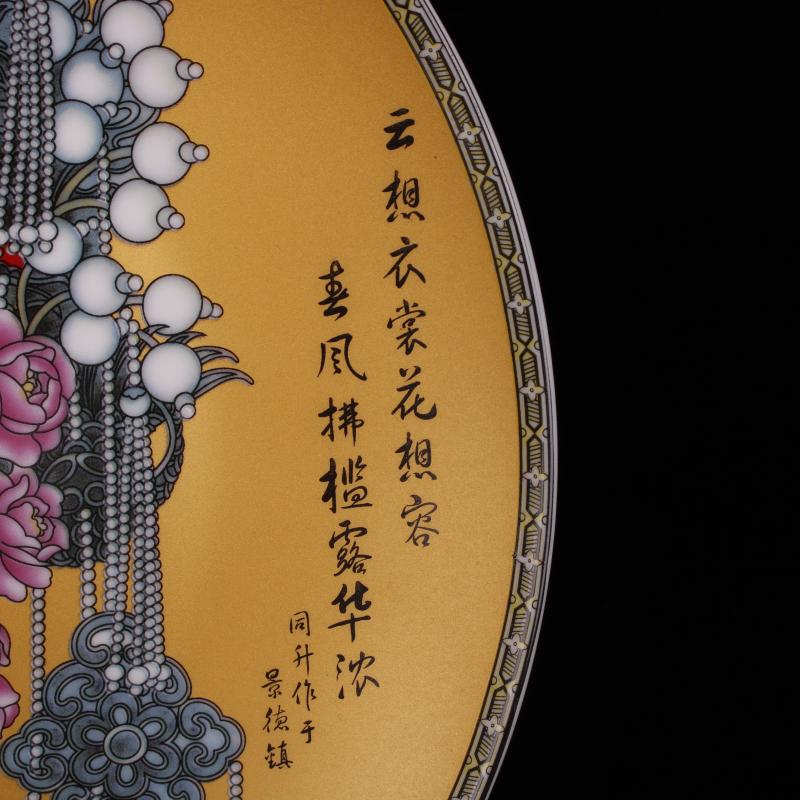 云想衣裳花想容
春风拂槛露华浓
同升作于
景德镇